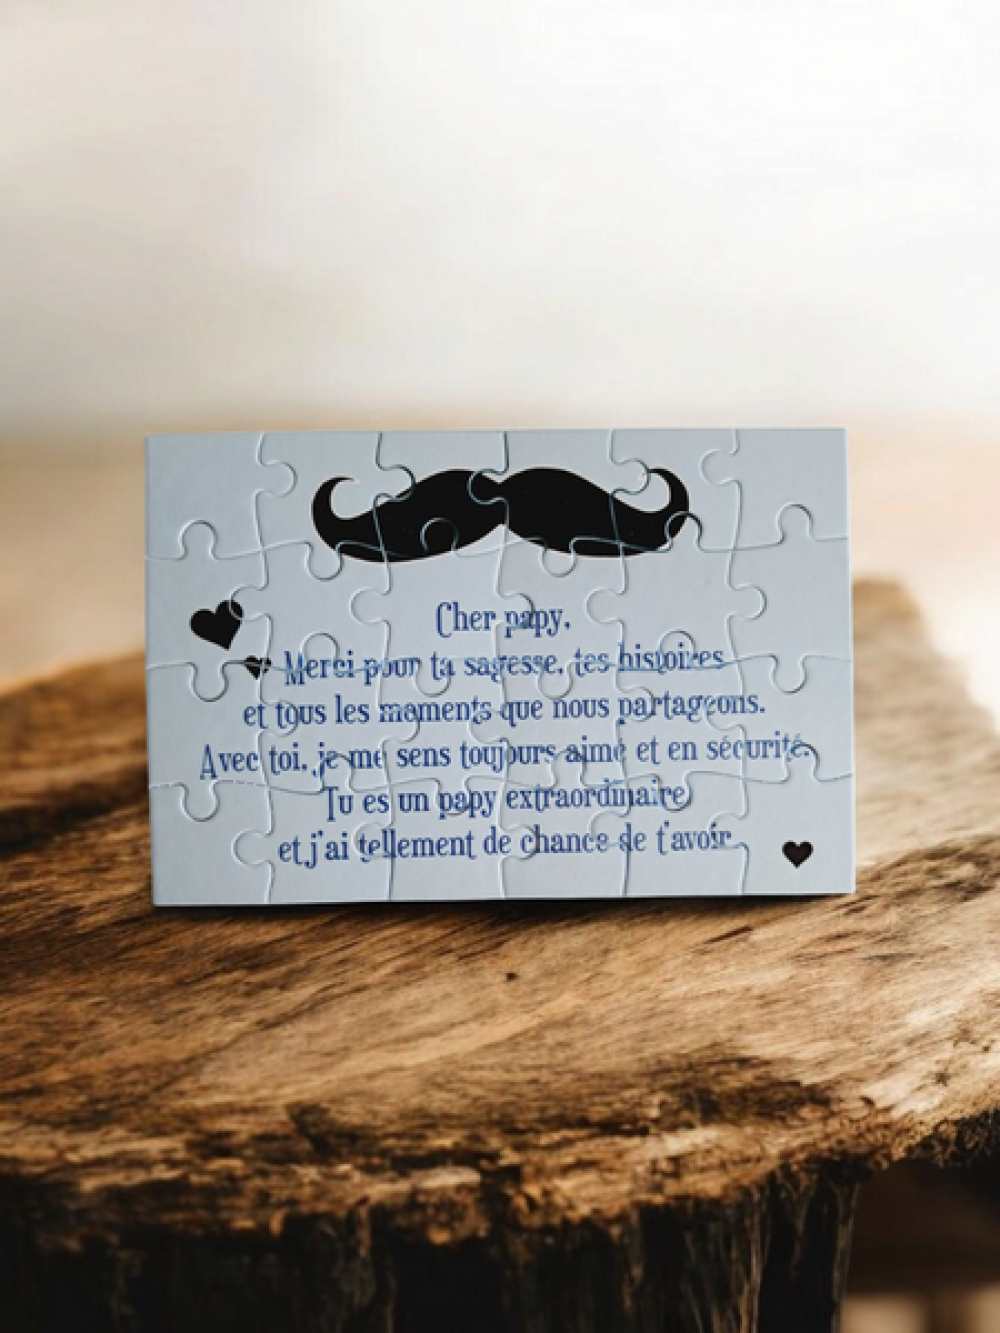 Cher papy,
Merci pour ta sagesse, tes histoires
et tous les moments que nous partageons.
Avec toi, je me sens toujours aimé et en sécurité.
Tu es un papy extraordinaire
et j'ai tellement de chance de t'avoir.